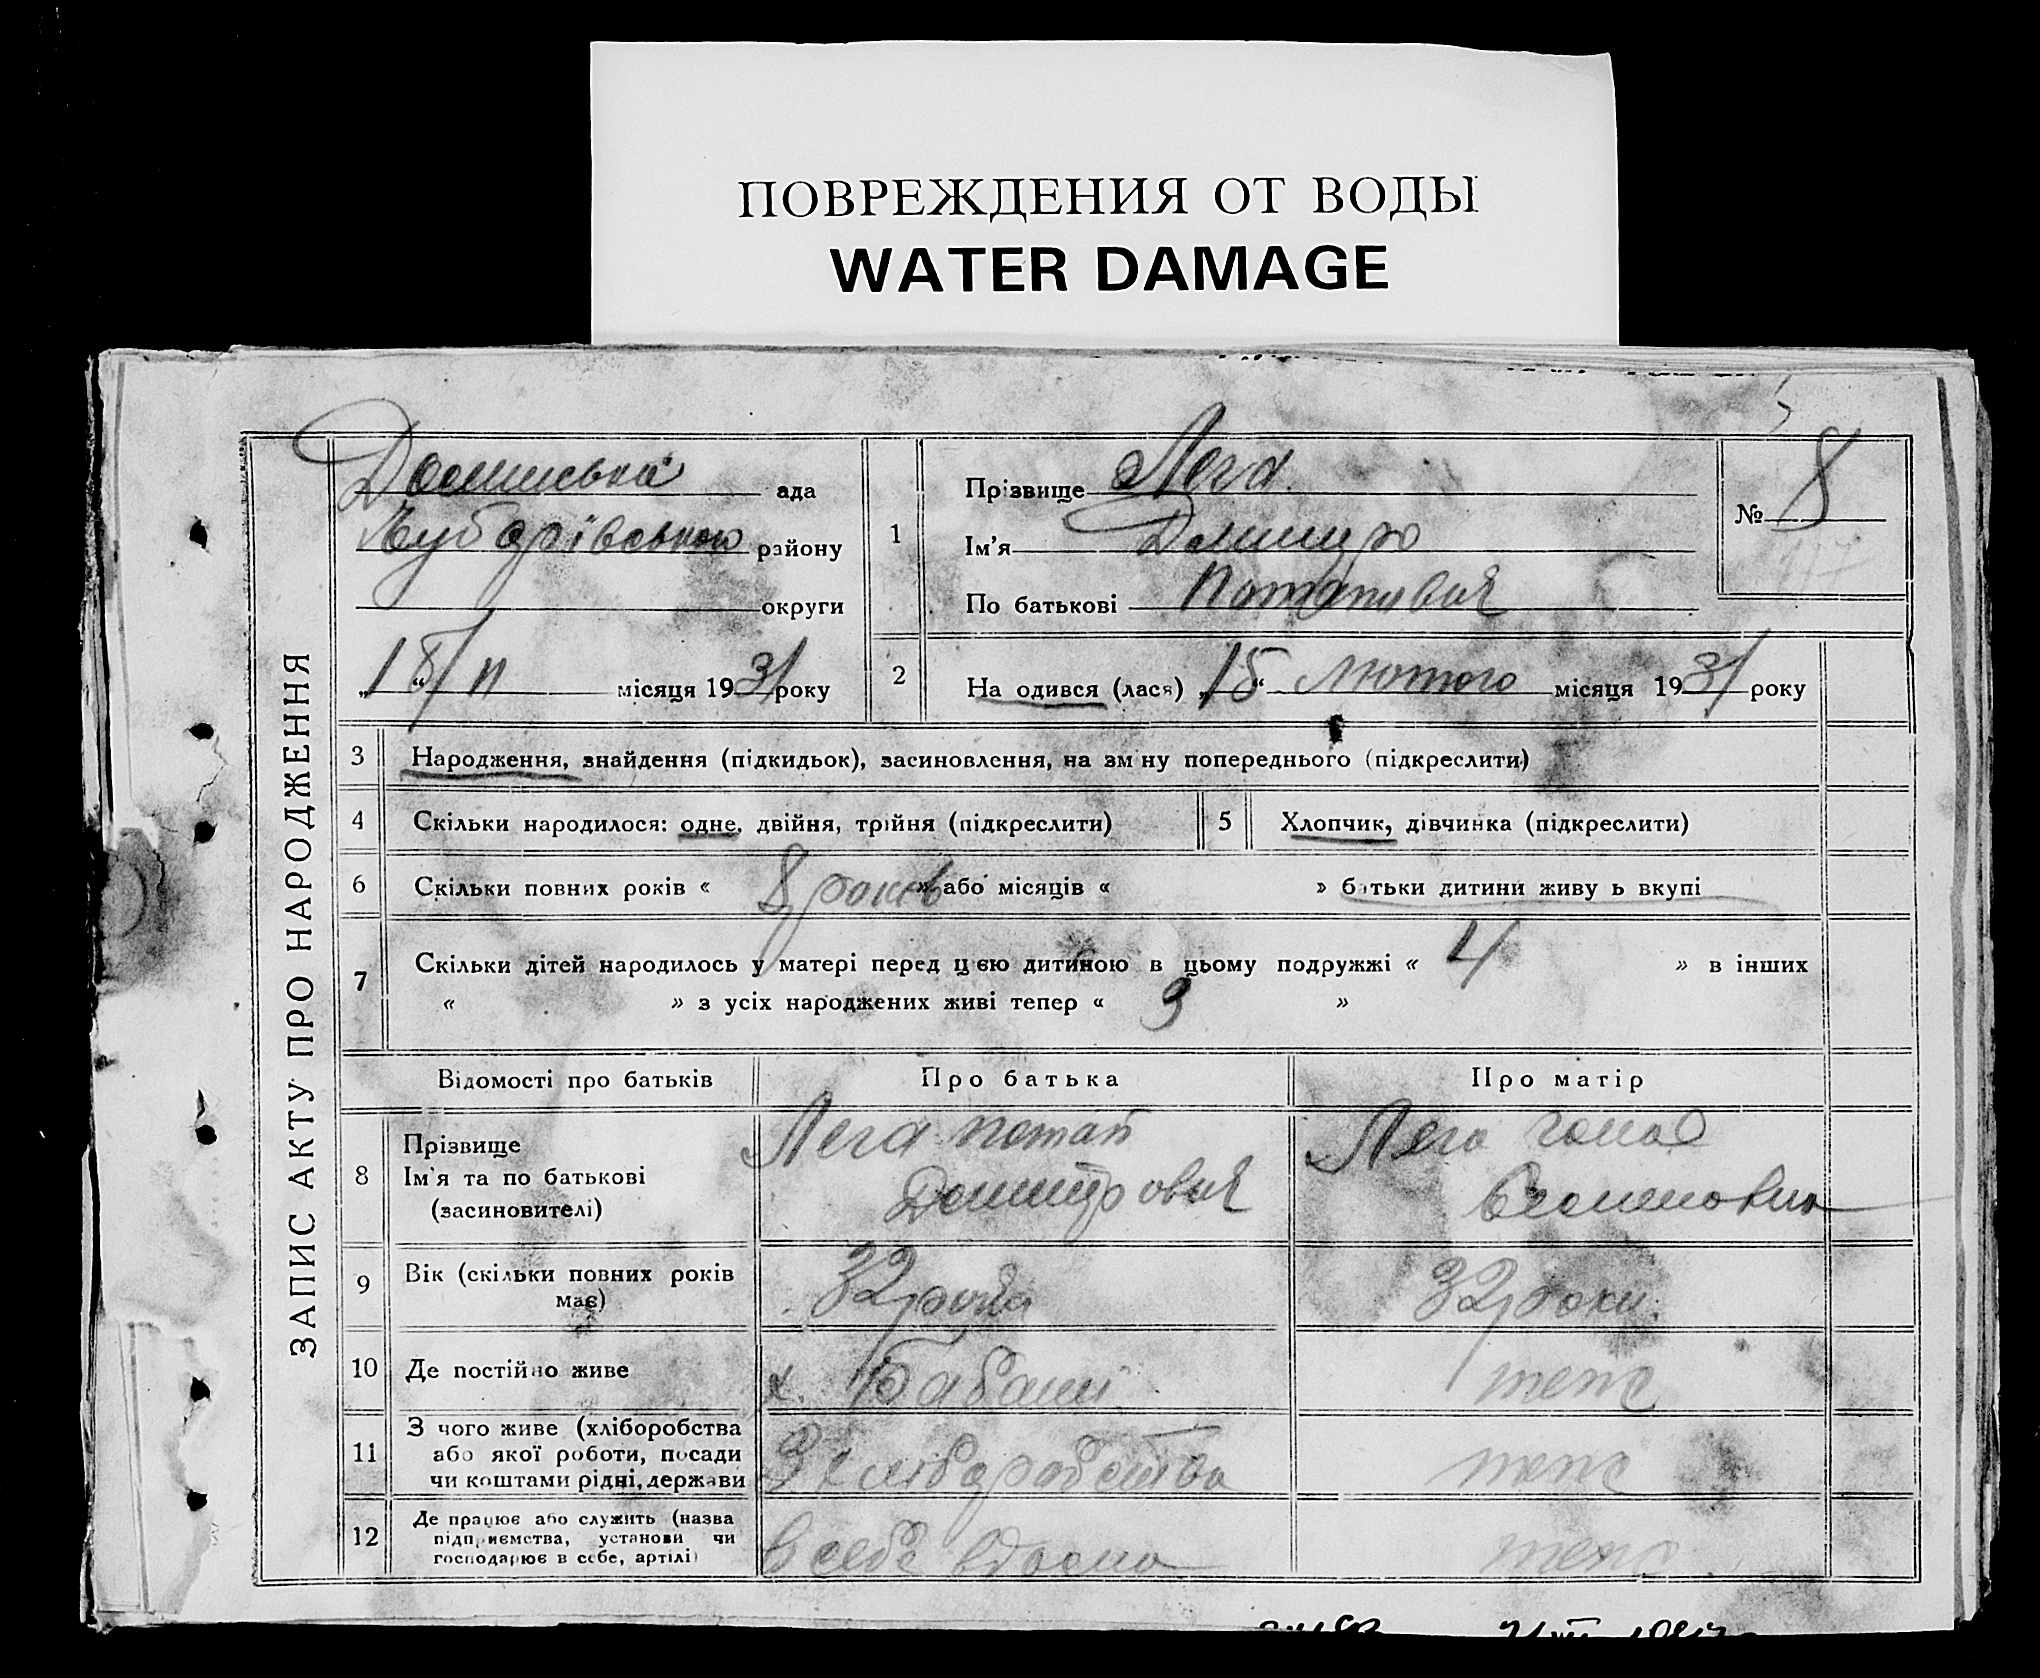 ПОВРЕЖДЕНИЯ ОТ ВОДЫ
WATER DAMAGE
ЗАПИС АКТУ ПРО НАРОДЖЕННЯ
ада
Чубарівського району
округи
18/II місяця 1931 року
1
Прізвище Лега
Ім'я Дмитро
По батькові Потапович
№ 8
2
На одився (лася) „15“ лютого місяця 1931 року
3 Народження, знайдення (підкидьок), засиновлення, на зм ну попереднього (підкреслити)
4 Скільки народилося: одне, двійня, трійня (підкреслити)
5 Хлопчик, дівчинка (підкреслити)
6 Скільки повних років « 8 років » або місяців « » батьки дитини живу ь вкупі
7 Скільки дітей народилось у матері перед цією дитиною в цьому подружжі « 4 » в інших
« » з усіх народжених живі тепер « 3 »
Відомості про батьків
Про батька
Про матір
8
Прізвище
Ім'я та по батькові
(засиновителі)
Лега Потап
Дмитрович
Лега
9
Вік (скільки повних років
має)
32 роки
32 роки
10 Де постійно живе
х. Бабаші
теж
11
З чого живе (хліборобства
або якої роботи, посади
чи коштами рідні, держави
З хліборобства
теж
12
Де працює або служить (назва
підприємства, установи чи
господарює в себе, артілі)
В себе вдома
теж